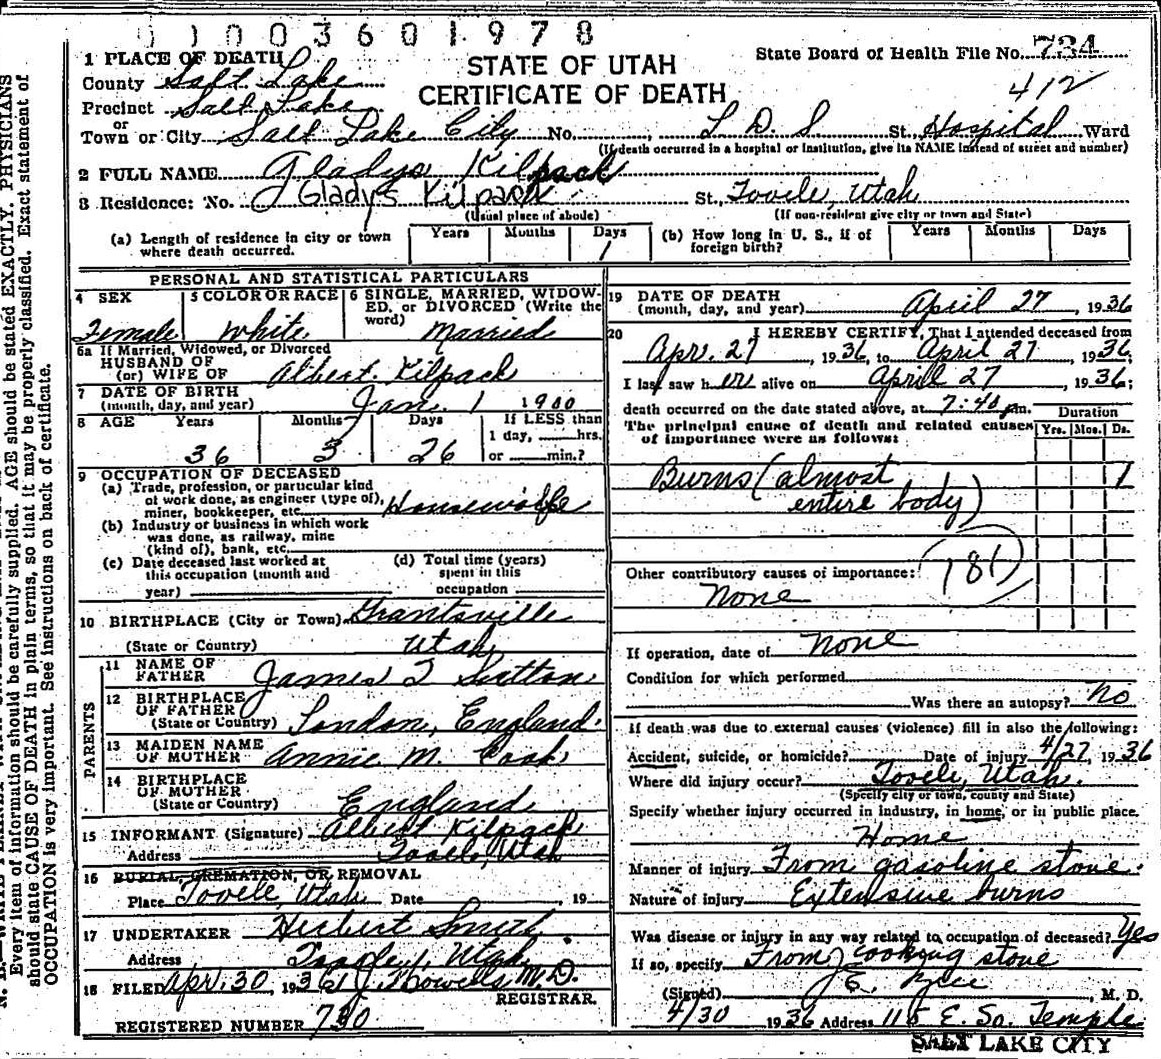 0 1 0 0 3 6 0 1 9 7 8
1 PLACE OF DEATH
County Salt Lake
Precinct Salt Lake
or
Town or City Salt Lake City No. , L. D. S. St. Hospital Ward
(If death occurred in a hospital or institution, give its NAME instead of street and number)
STATE OF UTAH
CERTIFICATE OF DEATH
State Board of Health File No. 734
412
2 FULL NAME Gladys Kilpack
3 Residence: No. Gladys Kilpack St., Tooele, Utah
(Usual place of abode) (If non-resident give city or town and State)
(a) Length of residence in city or town where death occurred. Years Months Days 1
(b) How long in U. S., if of foreign birth? Years Months Days
PERSONAL AND STATISTICAL PARTICULARS
4 SEX Female
5 COLOR OR RACE White
6 SINGLE, MARRIED, WIDOWED, or DIVORCED (Write the word) Married
6a If Married, Widowed, or Divorced
HUSBAND OF
(or) WIFE OF Albert Kilpack
7 DATE OF BIRTH
(month, day, and year) Jan. 1 1900
8 AGE Years 36 Months 3 Days 26 If LESS than
1 day, hrs.
or min.?
9 OCCUPATION OF DECEASED
(a) Trade, profession, or particular kind
of work done, as engineer (type of),
miner, bookkeeper, etc. Housewife
(b) Industry or business in which work
was done, as railway, mine
(kind of), bank, etc.
(c) Date deceased last worked at
this occupation (month and
year)
(d) Total time (years)
spent in this
occupation
10 BIRTHPLACE (City or Town) Grantsville
(State or Country) Utah
PARENTS
11 NAME OF
FATHER James T Sutton
12 BIRTHPLACE
OF FATHER
(State or Country) London, England.
13 MAIDEN NAME
OF MOTHER Annie M. Cook
14 BIRTHPLACE
OF MOTHER
(State or Country) England
15 INFORMANT (Signature) Albert Kilpack
Address Tooele, Utah
16 BURIAL, CREMATION, OR REMOVAL
Place Tooele, Utah Date , 19
17 UNDERTAKER Herbert Smith
Address Utah
18 FILED Apr. 30, 1936 M. D.
REGISTRAR.
REGISTERED NUMBER 730
19 DATE OF DEATH
(month, day, and year) April 27, 1936
20 I HEREBY CERTIFY, That I attended deceased from
Apr. 27, 1936, to April 27, 1936;
I last saw her alive on April 27, 1936;
death occurred on the date stated above, at 7:40 pm.
The principal cause of death and related causes
of importance were as follows:
Duration
Yrs. Mos. Ds.
Burns (almost 1
entire body)
181
Other contributory causes of importance:
None
If operation, date of None
Condition for which performed
Was there an autopsy? No
If death was due to external causes (violence) fill in also the following:
Accident, suicide, or homicide? Date of injury 4/27, 1936
Where did injury occur? Tooele, Utah.
(Specify city or town, county and State)
Specify whether injury occurred in industry, in home, or in public place.
Home
Manner of injury From gasoline stove.
Nature of injury Extensive burns
Was disease or injury in any way related to occupation of deceased? Yes
If so, specify From cooking stove
(Signed) , M. D.
4/30 1936 Address 115 E. So. Temple
SALT LAKE CITY
Every item of information should be carefully supplied. AGE should be stated EXACTLY. PHYSICIANS
should state CAUSE OF DEATH in plain terms, so that it may be properly classified. Exact statement of
OCCUPATION is very important. See instructions on back of certificate.